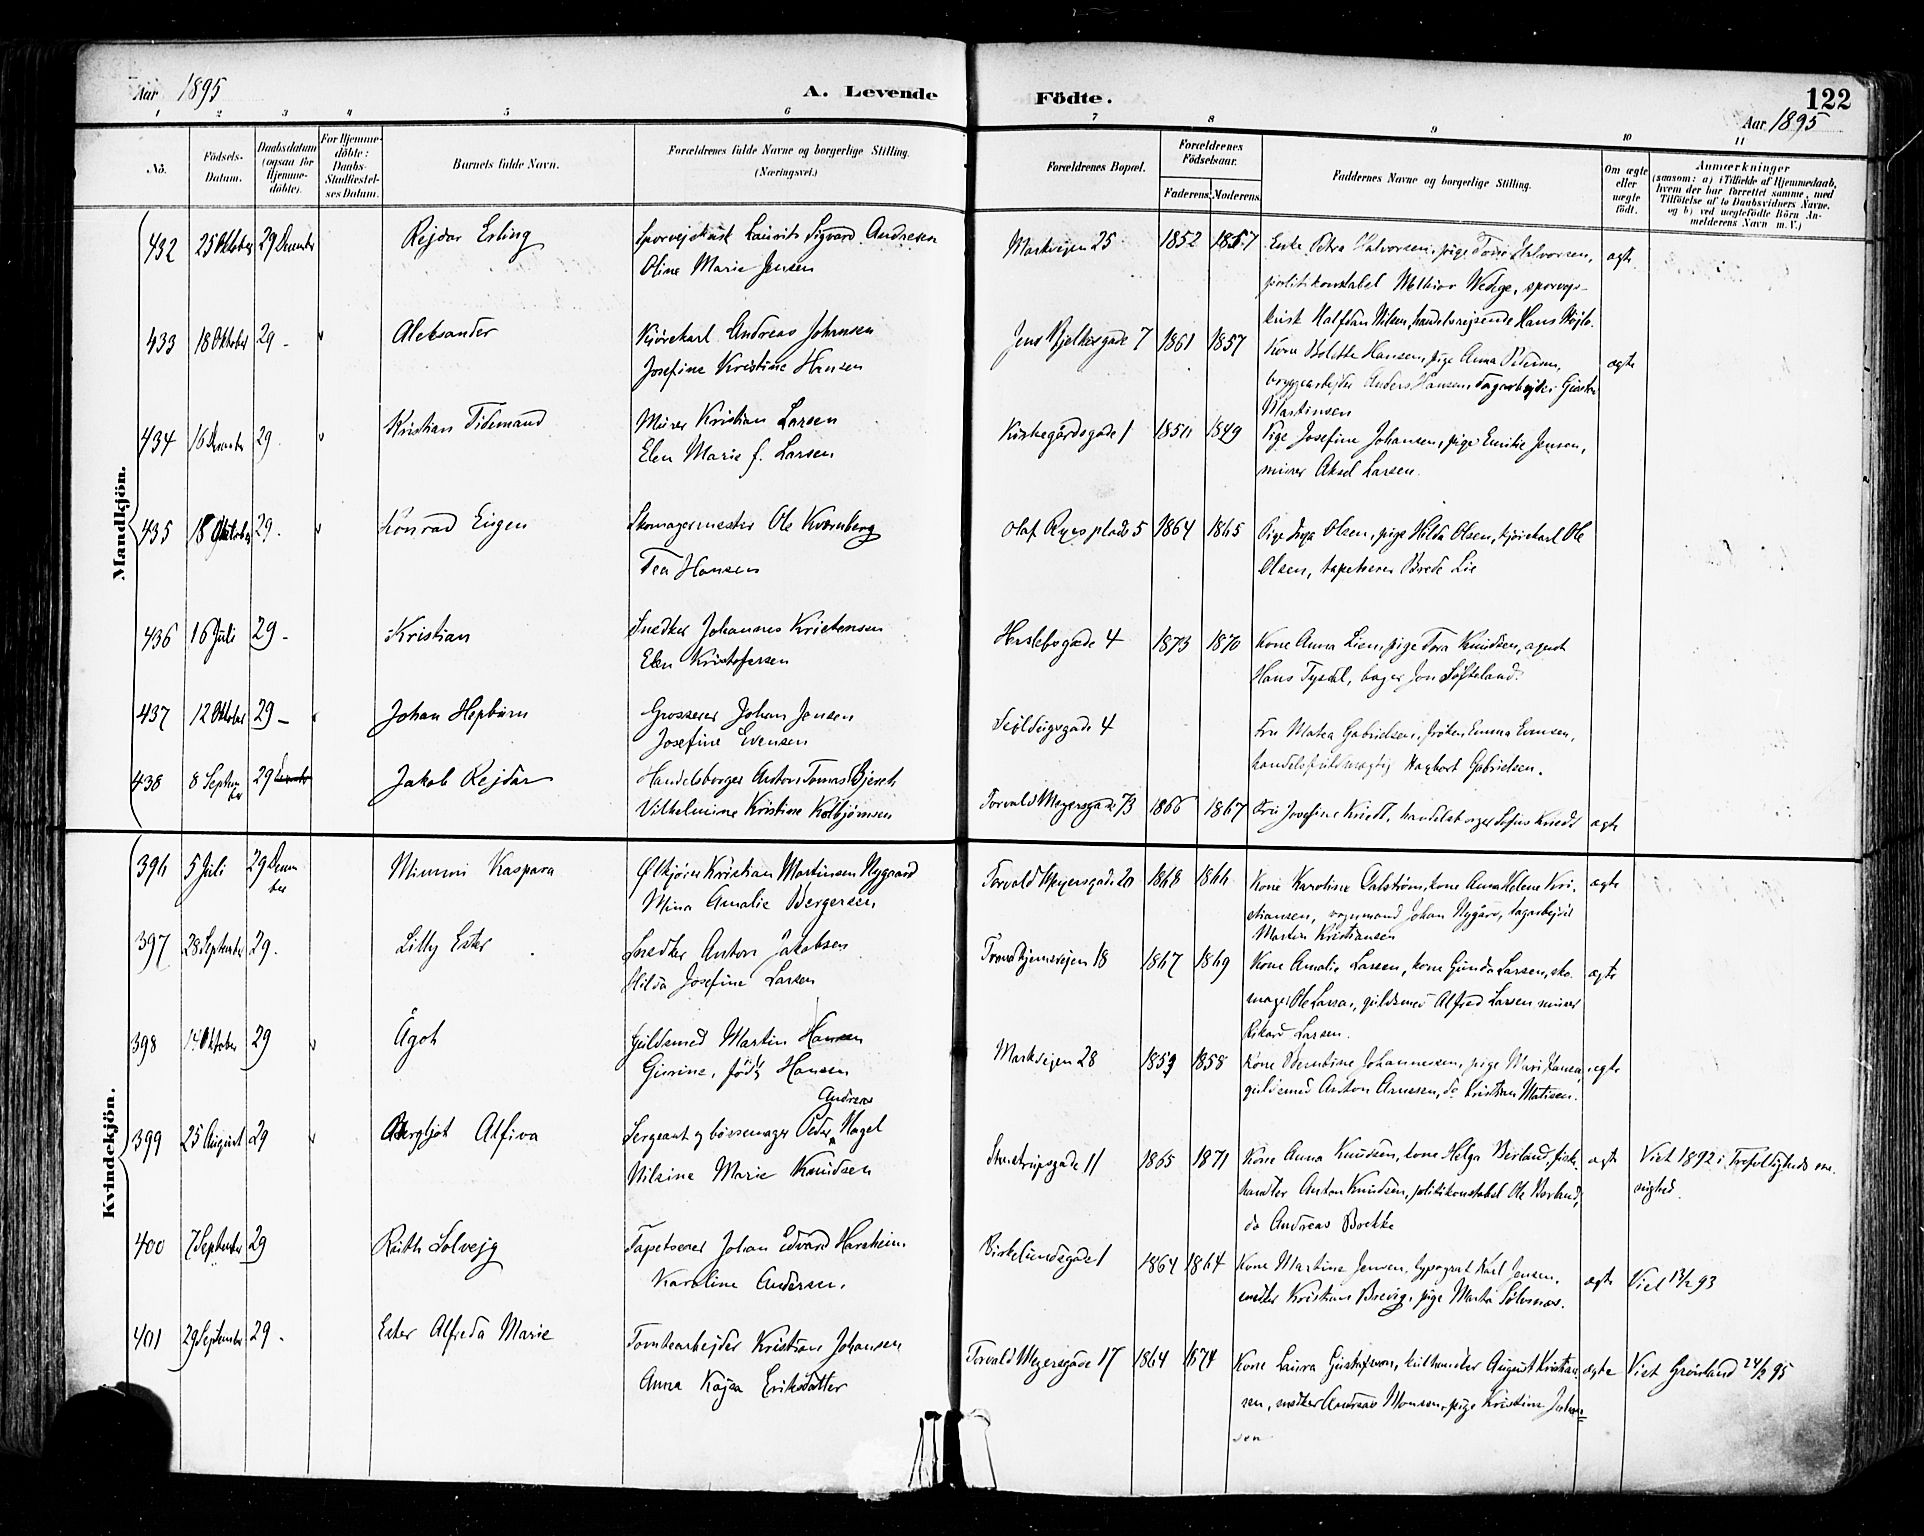 Aar 1895
A. Levende
Födte.
122
Aar 1895
1 2 3 4 5 6 7 8 9 10 11
No.
Födsels-
Datum.
Daabsdatum
(ogsaa for
Hjemme-
döbte).
For Hjemme-
döbte:
Daabs-
Stadfæstel-
ses Datum.
Barnets fulde Navn.
Forældrenes fulde Navne og borgerlige Stilling.
(Næringsvei.)
Forældrenes Bopæl.
Forældrenes
Födselsaar.
Faderens. Moderens.
Faddernes Navne og borgerlige Stilling.
Om ægte
eller
uægte
født.
Anmærkninger
(saasom: a) i Tilfælde af Hjemmedaab,
hvem der har forrettet samme, med
Tilføielse af to Daabsvidners Navne.
og b) ved uægtefödte Börn An-
melderens Navn m. V.)
Mandkjön.
432 25 Oktober 29 Desember Rejdar Erling
Sporvejskusk Laurits Sigvard Andresen
Oline Marie Jensen
Markvejen 25 1852 1857
Enke Petra Halvorsen, pige Halvorsen,
politikonstabel Wedege, sporvejs-
kusk Halfdan Nilsen, handelsrejsende Hans
ægte
433 18 Oktober 29 - Aleksander
Kjørekarl Andreas Johansen
Josefine Kristine Hansen
Jens Bjelkesgade 7 1861 1857
Kone Bolette Hansen, pige Anna Pedersen,
bryggearbejder Anders Hansen, dagarbejder
Martinsen
ægte
434 16 29. Kristian Tidemand
Murer Kristian Larsen
Elen Marie f. Larsen
Kirkegårdsgade 1 1849
Pige Josefine Johansen, pige Emilie Jensen,
murer Aksel Larsen.
435 18 Oktober 29. Konrad Eugen
Skomagermester Ole Kværnberg
Tea Hansen
Olaf Ryes plads 5 1864 1865
Pige Olsen, pige Hilda Olsen, kjørekarl Ole
Olsen, tapetserer Brede Lie
436 16 Juli 29 - Kristian
Snedker Johannes Kristensen
Elen Kristofersen
Herslebsgade 4 1873 1870
Kone Anna Lien, pige Tora Knudsen, agent
Hans Tysdal, bager Jon
437 12 Oktober 29 - Johan Hepburn
Grosserer Johan Jensen
Josefine Evensen
4
Fru Matea Gabrielsen, frøken Emma Evensen,
handelsfuldmægtig Hagbart Gabrielsen.
438 8 September 29 Jakob Rejdar
Handelsborger Anton Tomas Bjerch
Vilhelmine Kristine Kolbjørnsen
Torvald Meyersgade 73 1866 1867
Fru Josefine Knedt, handelsborger Sofus Knedt
ægte
Kvindekjön.
396 5 Juli 29 Desember Mimmi Kaspara
Ølkjører Kristian Martinsen Nygaard
Mina Amalie Bergersen
Torvald Meyersgade 20 1868 1866
Kone Karoline Dalstrøm, kone Anna Helene Kri-
stiansen, vognmand Johan Nygård, dagarbejder
Martin Kristiansen
ægte
397 28 September 29. Lilly Ester
Snedker Anton Jakobsen
Hilda Josefine Larsen
Trondhjemsvejen 18 1867 1869
Kone Amalie Larsen, kone Gunda Larsen, sko-
mager Ole Larsen, guldsmed Alfred Larsen murer
Rikard Larsen.
ægte
398 14 Oktober 29 Ågot
Guldsmed Martin Hansen
Gurine, født Hansen
Markvejen 28 1859 1858
Kone Johannesen, pige Hansen,
guldsmed Anton Arnesen, do Kristian Matisen.
ægte
399 25 August 29 Bergljot Alfiva
Sergeant og bøssemager Peder Andreas Nagel
Nilsine Marie Knudsen
11 1865 1871
Kone Anna Knudsen, kone Helga Berland, fiske-
handler Anton Knudsen, politikonstabel Ole Berland,
do Andreas Bockke
ægte
Viet 1892 i Trefoldigheds me-
nighed
400 7 September 29 Ruth Solvejg
Tapetserer Johan Edvard Harsheim
Karoline Andersen.
Birkelundsgade 1 1864 1864
Kone Martine Jensen, typograf Karl Jensen,
snedker Kristian Brevig, pige Marta
ægte
Viet 13/2 93
401 29 September 29. Ester Alfreda Marie
Tomtearbejder Kristian Johansen
Anna Kajsa Eriksdatter
Torvald Meyersgade 17 1864 1874
Kone Laura Gustafson, kulhandler August Kristian-
sen, snedker Andreas Monsen, pige Kristine Johan-
sen
ægte
Viet Grønland 24/2 95